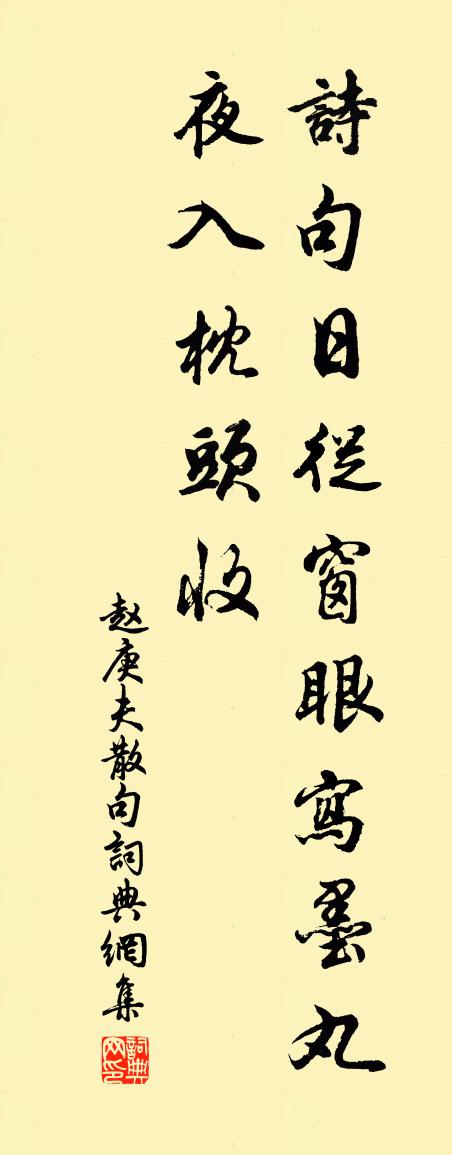 詩句日從窗眼寫墨丸
夜入枕頭收
赵庚夫散句詞典網集
詞典网印